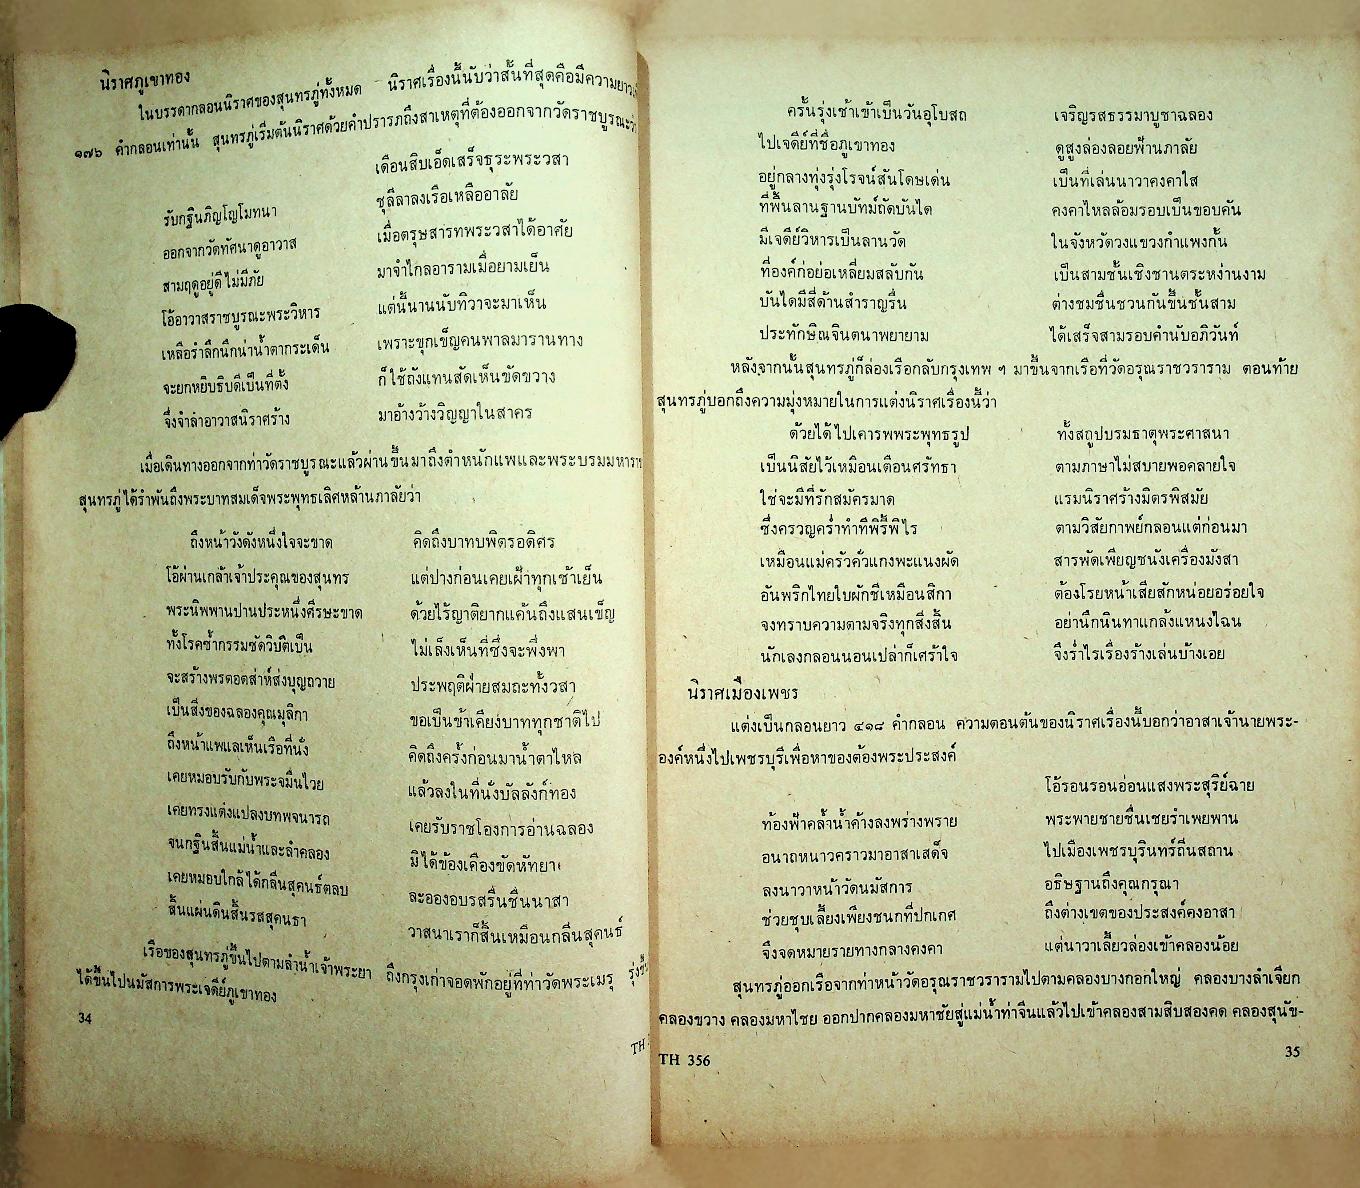 นิราศภูเขาทอง
ในบรรดากลอนนิราศของสุนทรภู่ทั้งหมด นิราศเรื่องนี้นับว่าสั้นที่สุดคือมีความยาว
๑๗๖ คำกลอนเท่านั้น สุนทรภู่เริ่มต้นนิราศด้วยคำปรารภถึงสาเหตุที่ต้องออกจากวัดราชบูรณะว่า
เดือนสิบเอ็ดเสร็จธุระพระวสา
รับกฐินภิญโญโมทนา ชุลีลาลงเรือเหลืออาลัย
ออกจากวัดทัศนาดูอาวาส เมื่อตรุษสารทพระวสาได้อาศัย
สามฤดูอยู่ดีไม่มีภัย มาจำไกลอารามเมื่อยามเย็น
โอ้อาวาสราชบูรณะพระวิหาร แต่นี้นานนับทิวาจะมาเห็น
เหลือรำลึกนึกน่าน้ำตากระเด็น เพราะขุกเข็ญคนพาลมารานทาง
จะยกหยิบธิบดีเป็นที่ตั้ง ก็ใช้ถังแทนสัดเห็นขัดขวาง
จึ่งจำลาอาวาสนิราศร้าง มาอ้างว้างวิญญาในสาคร
เมื่อเดินทางออกจากท่าวัดราชบูรณะแล้วผ่านขึ้นมาถึงตำหนักแพและพระบรมมหาราช
สุนทรภู่ได้รำพันถึงพระบาทสมเด็จพระพุทธเลิศหล้านภาลัยว่า
ถึงหน้าวังดังหนึ่งใจจะขาด คิดถึงบาทบพิตรอดิศร
โอ้ผ่านเกล้าเจ้าประคุณของสุนทร แต่ปางก่อนเคยเฝ้าทุกเช้าเย็น
พระนิพพานปานประหนึ่งศีรษะขาด ด้วยไร้ญาติยากแค้นถึงแสนเข็ญ
ทั้งโรคซ้ำกรรมซัดวิบัติเป็น ไม่เล็งเห็นที่ซึ่งจะพึ่งพา
จะสร้างพรตอตส่าห์ส่งบุญถวาย ประพฤติฝ่ายสมถะทั้งวสา
เป็นสิ่งของฉลองคุณมุลิกา ขอเป็นข้าเคียงบาททุกชาติไป
ถึงหน้าแพแลเห็นเรือที่นั่ง คิดถึงครั้งก่อนมาน้ำตาไหล
เคยหมอบรับกับพระจมื่นไวย แล้วลงในที่นั่งบัลลังก์ทอง
เคยทรงแต่งแปลงบทพจนารถ เคยรับราชโองการอ่านฉลอง
จนกฐินสิ้นแม่น้ำและลำคลอง มิได้ข้องเคืองขัดหัทยา
เคยหมอบใกล้ได้กลิ่นสุคนธ์ตลบ ละอองอบรสรื่นชื่นนาสา
สิ้นแผ่นดินสิ้นรสสุคนธา วาสนาเราก็สิ้นเหมือนกลิ่นสุคนธ์
เรือของสุนทรภู่ขึ้นไปตามลำน้ำเจ้าพระยา ถึงกรุงเก่าจอดพักอยู่ที่ท่าวัดพระเมรุ รุ่งขึ้น
ได้ขึ้นไปนมัสการพระเจดีย์ภูเขาทอง
34
TH
ครั้นรุ่งเช้าเข้าเป็นวันอุโบสถ เจริญรสธรรมาบูชาฉลอง
ไปเจดีย์ที่ชื่อภูเขาทอง ดูสูงล่องลอยฟ้านภาลัย
อยู่กลางทุ่งรุ่งโรจน์สันโดษเด่น เป็นที่เล่นนาวาคงคาใส
ที่พื้นลานฐานบัทม์ถัดบันได คงคาไหลล้อมรอบเป็นขอบคัน
มีเจดีย์วิหารเป็นลานวัด ในจังหวัดวงแขวงกำแพงกั้น
ที่องค์ก่อย่อเหลี่ยมสลับกัน เป็นสามชั้นเชิงชานตระหง่านงาม
บันไดมีสี่ด้านสำราญรื่น ต่างชมชื่นชวนกันขึ้นชั้นสาม
ประทักษิณจินตนาพยายาม ได้เสร็จสามรอบคำนับอภิวันท์
หลังจากนั้นสุนทรภู่ก็ล่องเรือกลับกรุงเทพ ฯ มาขึ้นจากเรือที่วัดอรุณราชวราราม ตอนท้าย
สุนทรภู่บอกถึงความมุ่งหมายในการแต่งนิราศเรื่องนี้ว่า
ด้วยได้ไปเคารพพระพุทธรูป ทั้งสถูปบรมธาตุพระศาสนา
เป็นนิสัยไว้เหมือนเตือนศรัทธา ตามภาษาไม่สบายพอคลายใจ
ใช่จะมีที่รักสมัครมาด แรมนิราศร้างมิตรพิสมัย
ซึ่งครวญคร่ำทำทีพิรี้พิไร ตามวิสัยกาพย์กลอนแต่ก่อนมา
เหมือนแม่ครัวคั่วแกงพะแนงผัด สารพัดเพียญชนังเครื่องมังสา
อันพริกไทยใบผักชีเหมือนสีกา ต้องโรยหน้าเสียสักหน่อยอร่อยใจ
จงทราบความตามจริงทุกสิ่งสิ้น อย่านึกนินทาแกล้งแหนงไฉน
นักเลงกลอนนอนเปล่าก็เศร้าใจ จึงร่ำไรเรื่องร้างเล่นบ้างเอย
นิราศเมืองเพชร
แต่งเป็นกลอนยาว ๔๑๘ คำกลอน ความตอนต้นของนิราศเรื่องนี้บอกว่าอาสาเจ้านายพระ-
องค์หนึ่งไปเพชรบุรีเพื่อหาของต้องพระประสงค์
โอ้รอนรอนอ่อนแสงพระสุริย์ฉาย
ท้องฟ้าคล้ำน้ำค้างลงพร่างพราย พระพายชายชื่นเชยรำเพยพาน
อนาถหนาวคราวมาอาสาเสด็จ ไปเมืองเพชรบุรินทร์ถิ่นสถาน
ลงนาวาหน้าวัดนมัสการ อธิษฐานถึงคุณกรุณา
ช่วยชุบเลี้ยงเพียงชนกที่ปกเกศ ถึงต่างเขตของประสงค์คงอาสา
จึงจดหมายรายทางกลางคงคา แต่นาวาเลี้ยวล่องเข้าคลองน้อย
สุนทรภู่ออกเรือจากท่าหน้าวัดอรุณราชวรารามไปตามคลองบางกอกใหญ่ คลองบางลำเจียก
คลองขวาง คลองมหาไชย ออกปากคลองมหาชัยสู่แม่น้ำท่าจีนแล้วไปเข้าคลองสามสิบสองคด คลองสุนัข-
TH 356
35